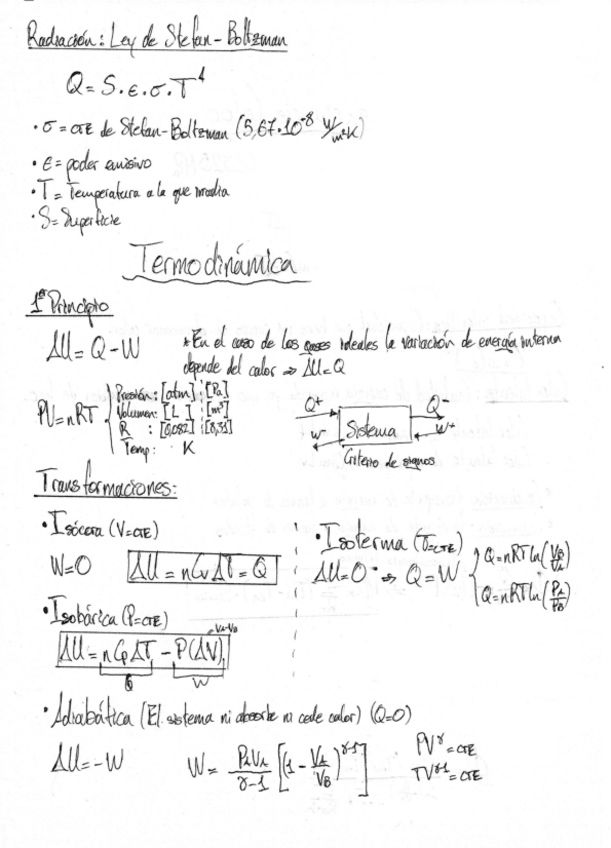 Radiación: Ley de Stefan-Boltzman
Q = S.ε.σ.T⁴
• σ = CTE de Stefan-Boltzman (5,67·10⁻⁸ W/m²K)
• ε = poder emisivo
• T = Temperatura a la que irradia
• S = Superficie
Termodinámica
1er Principio
ΔU = Q - W
* En el caso de los gases ideales la variación de energía interna
depende del calor ⇒ ΔU = Q
PV = nRT
Presión: [atm] [Pa]
Volumen: [L] [m³]
R : [0,082] [8,31]
Temp: K
Q+ Q-
Sistema
W- W+
Criterio de signos
Transformaciones:
• Isócora (V=CTE)
W=0 ΔU = nCvΔT = Q
• Isoterma (T=CTE)
ΔU=0 ⇒ Q = W
Q = nRT ln(VB/VA)
Q = nRT ln(PA/PB)
• Isobárica (P=CTE)
VA-VB
ΔU = nCpΔT - P(ΔV)
Q W
• Adiabática (El sistema ni absorbe ni cede calor) (Q=0)
ΔU = -W W = PAVA/γ-1 [(1 - VA/VB)^γ-1]
PV^γ = CTE
TV^γ-1 = CTE